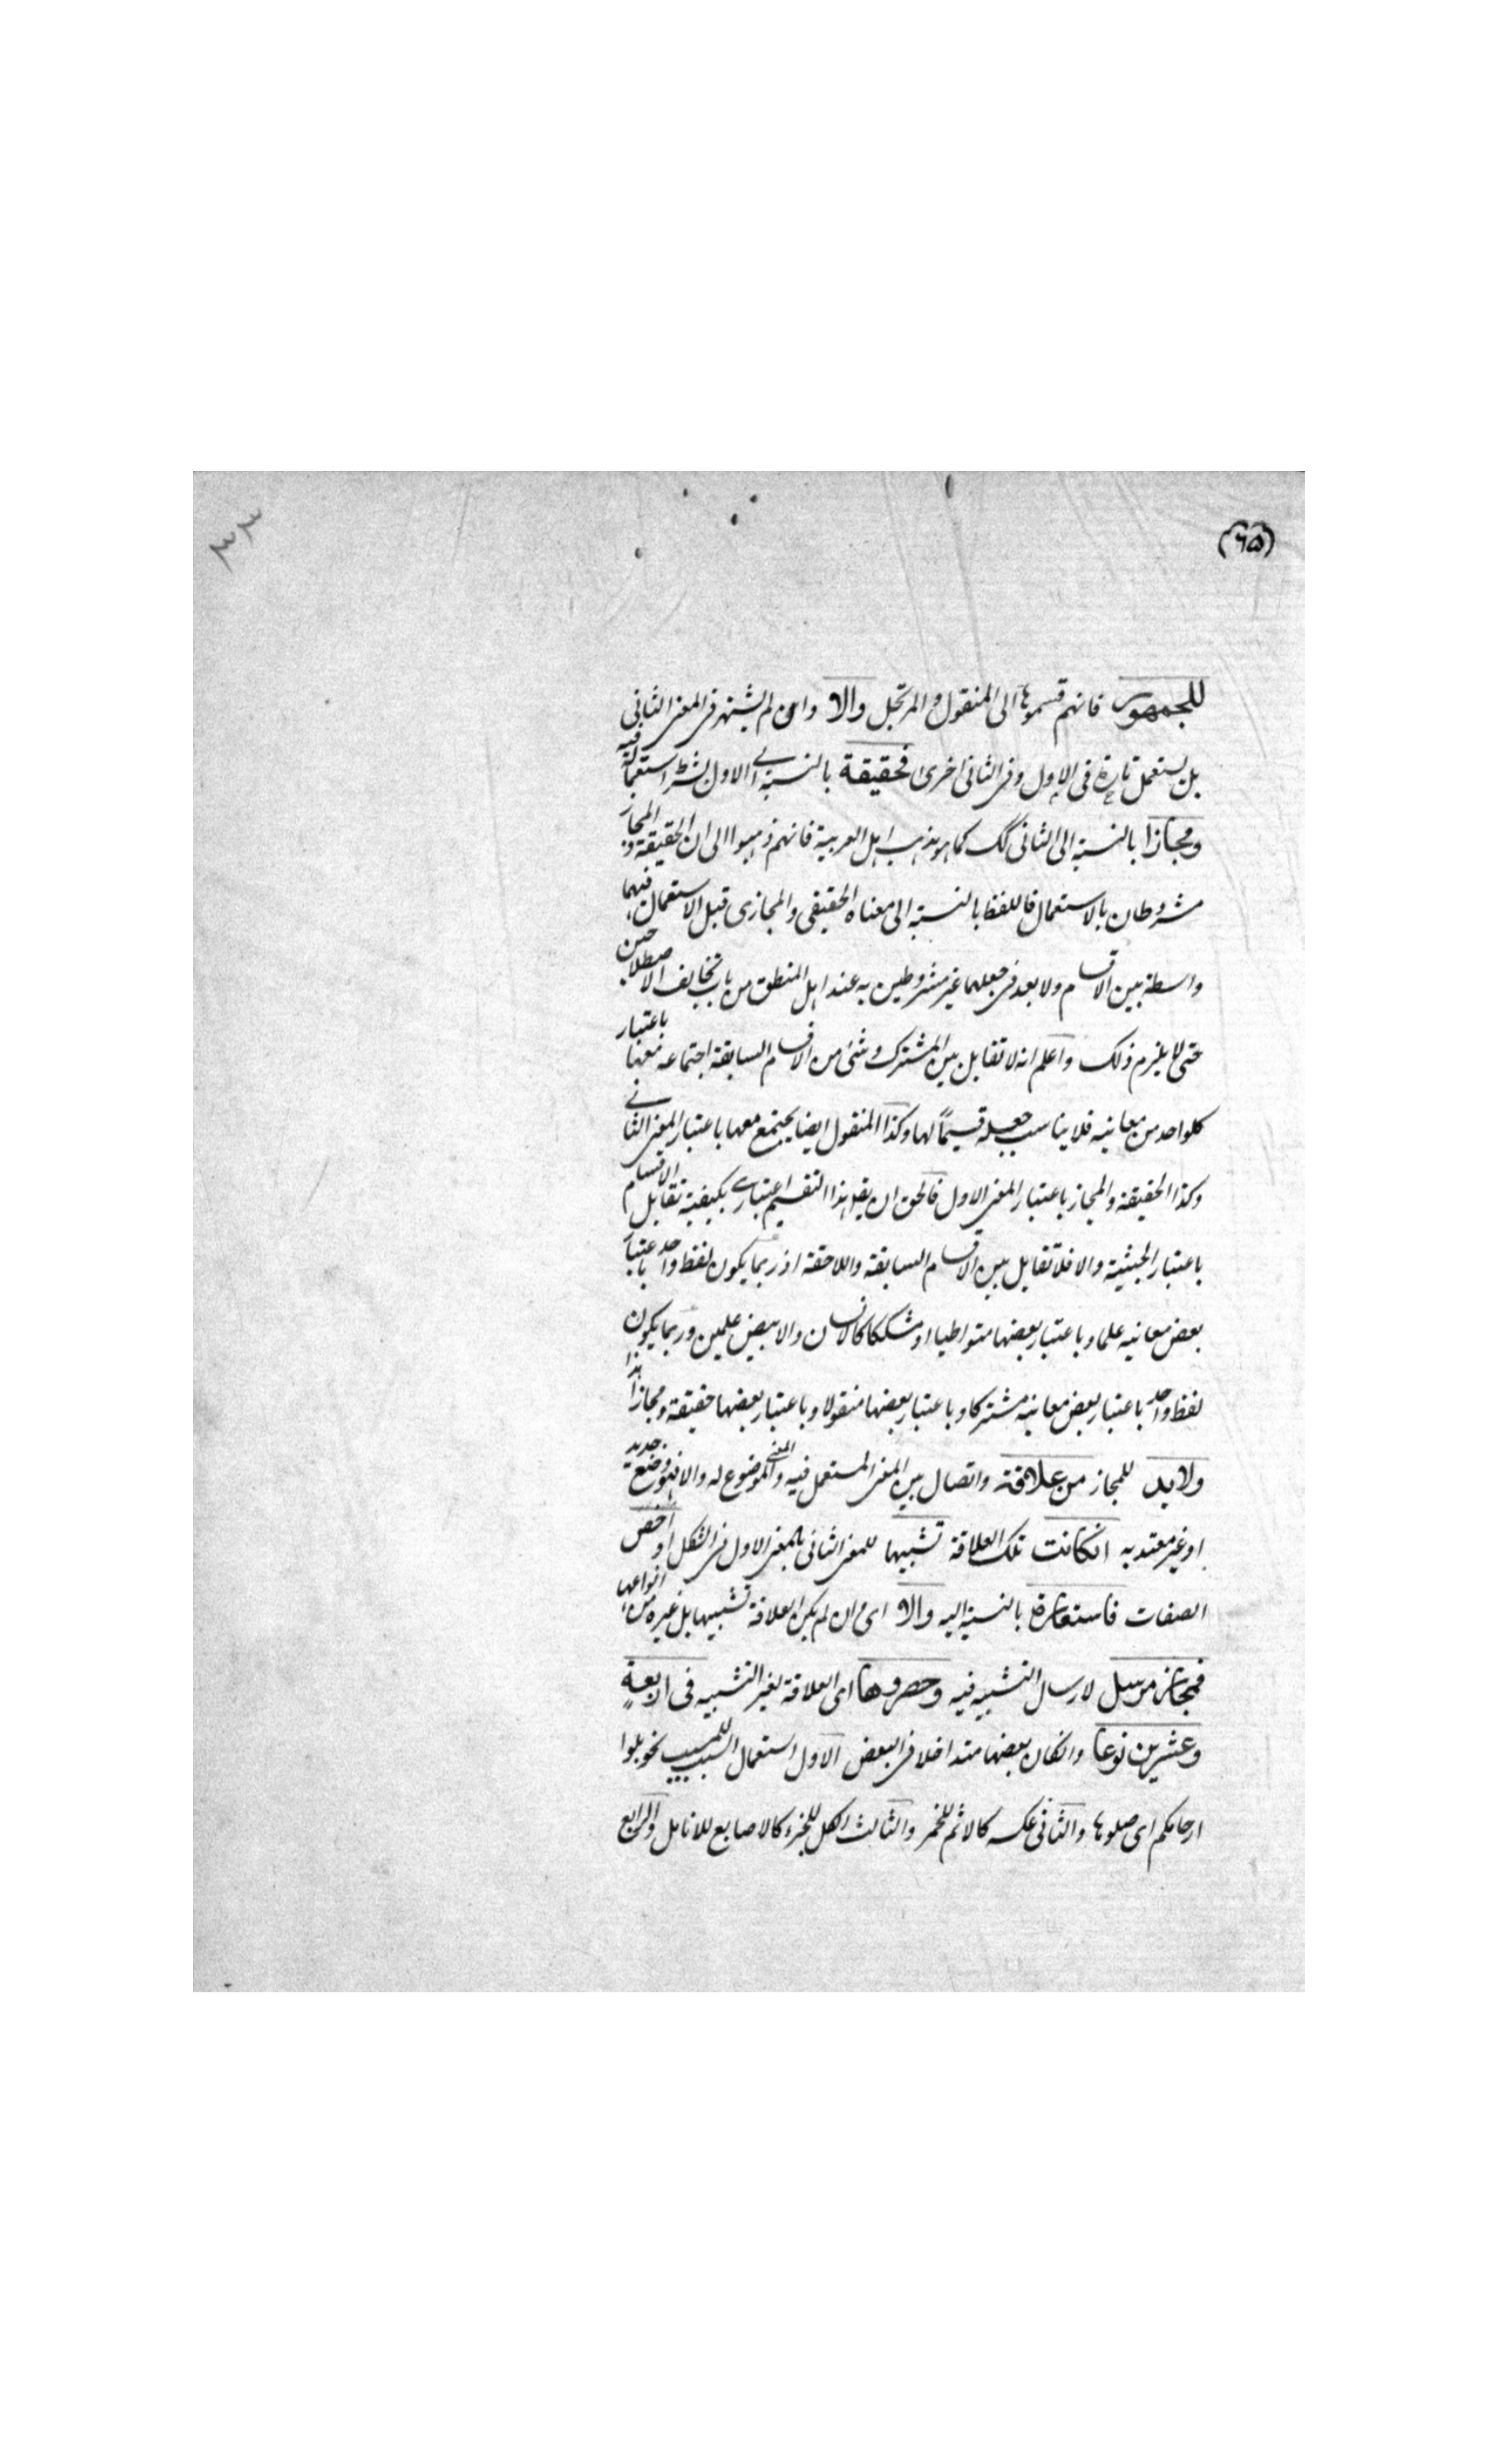 (٦٥)
٣٣
للجمهور فانهم قسموها الى المنقول والمرتجل والا وان لم يشتهر فى المعنى الثانى
بل يستعمل تارة فى الاول وفى الثانى اخرى فحقيقة بالنسبة الى الاول بشرط استعماله فيه
ومجازا بالنسبة الى الثانى كك كما هو مذهب اهل العربية فانهم ذهبوا الى ان الحقيقة والمجاز
مشروطان بالاستعمال فاللفظ بالنسبة الى معناه الحقيقى والمجازى قبل الاستعمال فيهما
واسطة بين الاقسام ولا بعد فى جعلهما غير مشروطين به عند اهل المنطق من باب تخالف الاصطلاحين
حتى لا يلزم ذلك واعلم انه لا تقابل بين المشترك وشئ من الاقسام السابقة اجتماعه معها باعتبار
كلواحد من معانيه فلا يناسب جعله قسيمًا لها وكذا المنقول ايضا يجتمع معها باعتبار المعنى الثانے
وكذا الحقيقة والمجاز باعتبار المعنى الاول فالحق ان يقال هذا التقسيم اعتبارے يكفيه تقابل الاقسام
باعتبار الحيثية والا فلا تقابل بين الاقسام السابقة واللاحقة اذ ربما يكون لفظ واحد باعتبار
بعض معانيه علما وباعتبار بعضها متواطيا او مشككا كالانسان والابيض علمين وربما يكون
لفظ واحد باعتبار بعض معانيه مشتركا وباعتبار بعضها منقولا وباعتبار بعضها حقيقة ومجازا هذا
ولابد للمجاز من علاقة واتصال بين المعنى المستعمل فيه والمعنى الموضوع له والا فهو وضع جديد
او غير معتد به انكانت تلك العلاقة تشبيها للمعنى الثانى بالمعنى الاول فى الشكل او اخص
الصفات فاستعارة بالنسبة اليه والا اى وان لم يكن العلاقة تشبيها بل غيره من انواعها
فمجاز مرسل لارسال التشبيه فيه وحصروها اى العلاقة بغير التشبيه فى اربعةٍ
وعشرين نوعا وانكان بعضها متداخلا فى البعض الاول استعمال السبب للمسبب نحو بلوا
ارحامكم اى صلوها والثانى عكسه كالاثم للخمر والثالث الكل للجزء كالاصابع للانامل والرابع